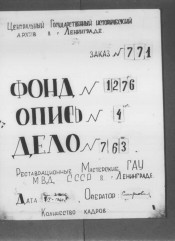 Центральный Государственный исторический
архив в г. Ленинграде
ЗАКАЗ № 771
ФОНД № 1276
ОПИСЬ № 4
ДЕЛО № 763
Реставрационные Мастерские ГАУ
МВД СССР в г. Ленинграде
Дата Оператор
Количество кадров